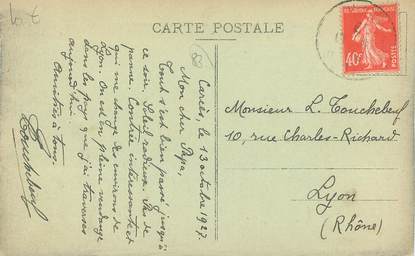 CARTE POSTALE
40c
POSTES
Carcès, le 13 octobre 1927.
Mon cher Papa,
Tout s'est bien passé jusqu'à
ce soir. Soleil radieux. Pas de
panne. Contrée intéressante et
qui me change des environs de
Lyon. On est en pleine vendange
dans les pays que j'ai traversés
aujourd'hui.
Amitiés à tous.
Touchebeuf
Monsieur L. Touchebeuf
10, rue Charles-Richard
Lyon
(Rhône)